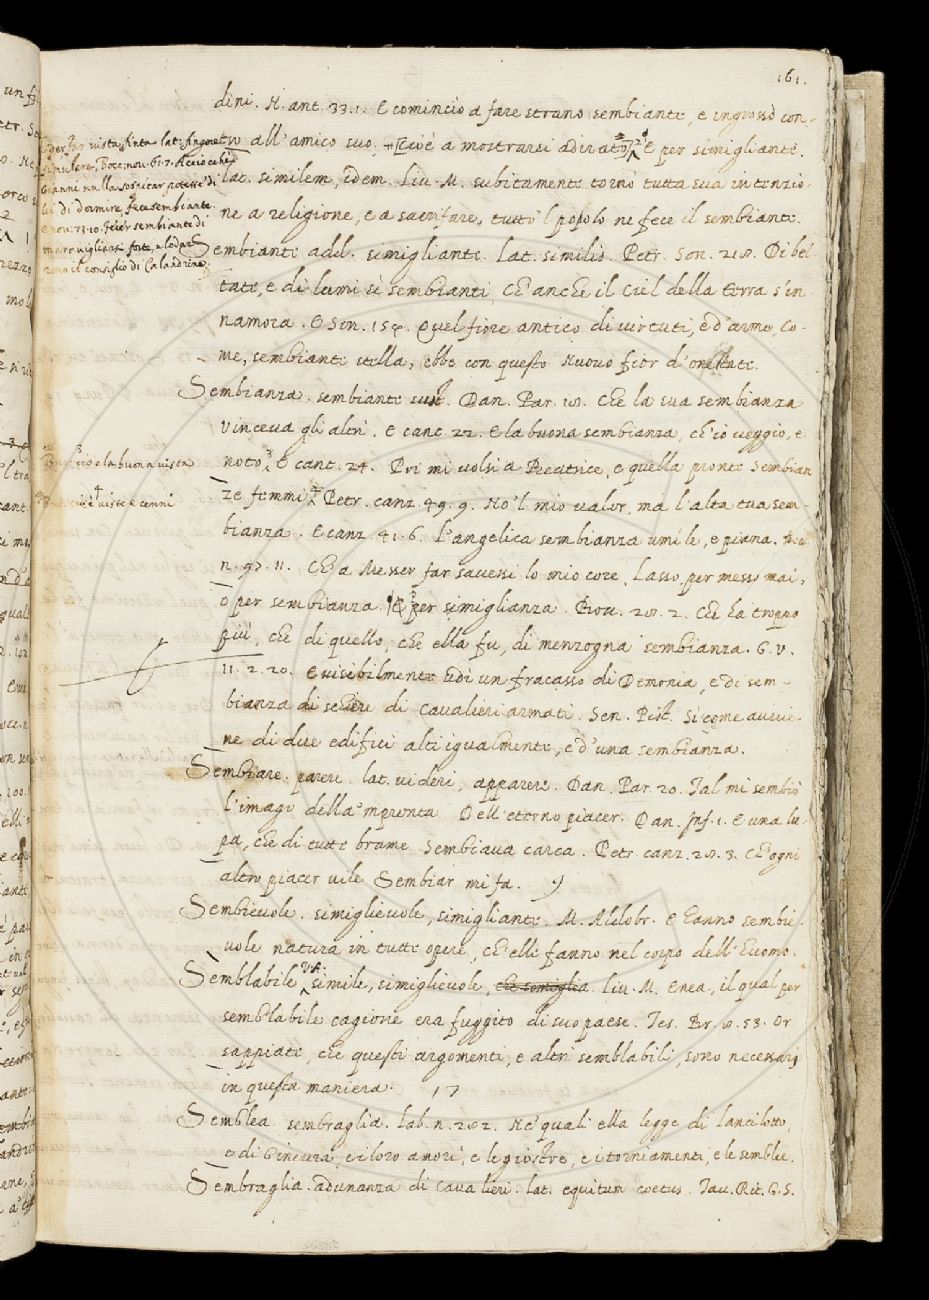 161.
dini. N. ant. 33.1. E cominciò a fare strano sembiante, e ingrossò con-
tro all'amico suo, cioè a mostrarsi adirato. E per simigliante.
lat. similem, idem. Liu. M. subitamente tornò tutta sua intenzio-
ne a religione, e a sacrifare, tutto 'l popolo ne fece il sembiante.
Sembiante add. simigliante. Lat. similis. Petr. Son. 218. Di bel
tate, e di lumi sì sembianti, Ch'anche il Ciel della terra s'in
namora. E Son. Quel fiore antico di virtuti, e d'arme, Co-
me, sembiante stella, ebbe con questo Nuovo fior d'onestate.
Sembianza. sembiante sust. Dan. Par. 18. Che la sua sembianza
Vinceva gli altri. E cant. 22. E la buona sembianza, ch'io veggio, e
noto. E cant. 24. Poi mi volsi a Beatrice, e quella pronte Sembian
ze femmi. Petr. canz. 49. 9. No 'l mio valor, ma l'alta tua sem-
bianza. E canz. 41.6. L'angelica sembianza umile, e piana.
n. 97. 11. Ch'a Messer far savessi lo mio core, Lasso, per messo mai,
o per sembianza. E per simiglianza. Nov. 28. 2. Che ha troppo
più, che di quello, che ella fu, di menzogna sembianza. G. V.
11. 2. 20. E visibilmente udì un fracasso di Demonia, e di sem-
bianza di schiere di cavalieri armati. Sen. Pist. Sì come avvie-
ne di due edifici alti igualmente, e d'una sembianza.
Sembiare. parere. lat. videri, apparere. Dan. Par. 20. Tal mi sembiò
l'imago della 'mprenta Dell'eterno piacer. Dan. Inf. 1. E una lu
pa, che di tutte brame Sembiava carca. Petr. canz. 28. 3. Ch'ogni
altro piacer vile Sembiar mi fa.
Sembievole. simiglievole, simigliante. M. Aldobr. E hanno sembie
vole natura in tutte opere, ch'elle fanno nel corpo dell'huomo.
Semblabile V.A. simile, simiglievole, che somiglia. Liu. M. Enea, il qual per
semblabile cagione era fuggito di suo paese. Tes. Br. 8. 53. Or
sappiate, che questi argomenti, e altri semblabili, sono necessarj
in questa maniera. 17
Semblea. sembraglia. Lab. n. 202. Né quali ella legge di Lancilotto,
e di Ginevra, e i loro amori, e le giostre, e i torniamenti, e le semblee.
Sembraglia. adunanza di cavalieri. lat. equitum coetus. Tav. Rit. G. S.
per far vista, finta. lat. fingere
simulare. Bocc. nov. 61. 7. Acciochè
Gianni nulla sospicar potesse di
lei di dormire, fece sembiante.
E nov. 73. 10. fecer sembiante di
maravigliarsi forte, e loda-
rono il consiglio di Calandrino
e la buona vista
cioè viste e cenni